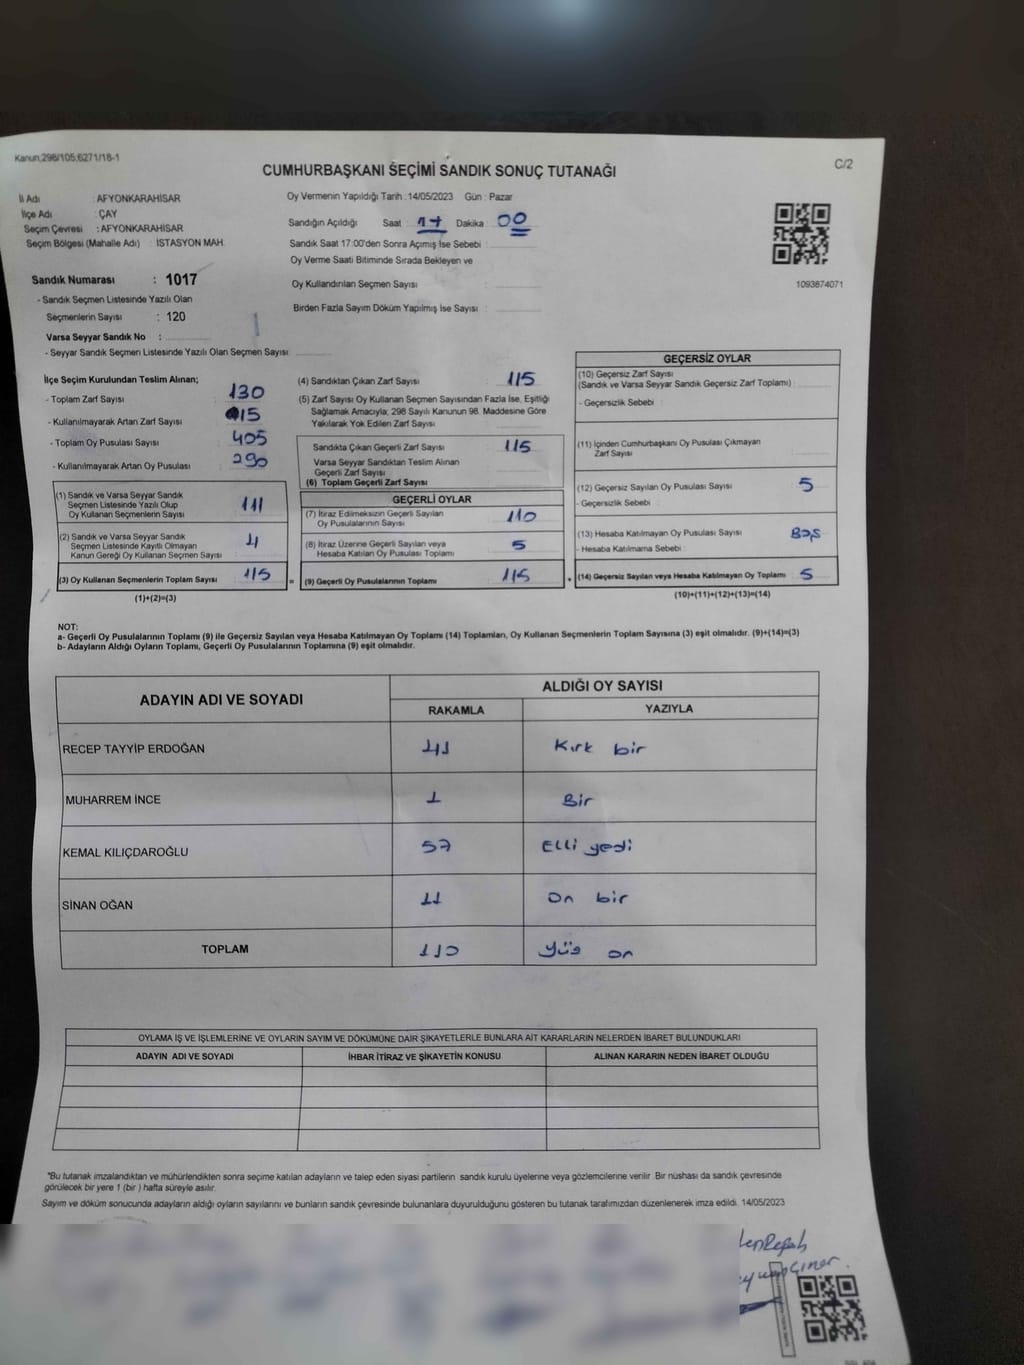 Kanun;298/105;6271/18-1
C/2
CUMHURBAŞKANI SEÇİMİ SANDIK SONUÇ TUTANAĞI
İl Adı : AFYONKARAHİSAR
İlçe Adı : ÇAY
Seçim Çevresi : AFYONKARAHİSAR
Seçim Bölgesi (Mahalle Adı) : İSTASYON MAH.
Oy Vermenin Yapıldığı Tarih : 14/05/2023 Gün : Pazar
Sandığın Açıldığı Saat : 17 Dakika : 00
Sandık Saat 17:00'den Sonra Açımış İse Sebebi :
Oy Verme Saati Bitiminde Sırada Bekleyen ve
Oy Kullandırılan Seçmen Sayısı :
Birden Fazla Sayım Döküm Yapılmış İse Sayısı :
1093874071
Sandık Numarası : 1017
- Sandık Seçmen Listesinde Yazılı Olan
Seçmenlerin Sayısı : 120
Varsa Seyyar Sandık No :
- Seyyar Sandık Seçmen Listesinde Yazılı Olan Seçmen Sayısı:
İlçe Seçim Kurulundan Teslim Alınan;
- Toplam Zarf Sayısı : 130
- Kullanılmayarak Artan Zarf Sayısı : 15
- Toplam Oy Pusulası Sayısı : 405
- Kullanılmayarak Artan Oy Pusulası : 290
(1) Sandık ve Varsa Seyyar Sandık
Seçmen Listesinde Yazılı Olup
Oy Kullanan Seçmenlerin Sayısı : 111
(2) Sandık ve Varsa Seyyar Sandık
Seçmen Listesinde Kayıtlı Olmayan
Kanun Gereği Oy Kullanan Seçmen Sayısı : 4
(3) Oy Kullanan Seçmenlerin Toplam Sayısı : 115
(1)+(2)=(3)
(4) Sandıktan Çıkan Zarf Sayısı : 115
(5) Zarf Sayısı Oy Kullanan Seçmen Sayısından Fazla İse, Eşitliği
Sağlamak Amacıyla; 298 Sayılı Kanunun 98. Maddesine Göre
Yakılarak Yok Edilen Zarf Sayısı :
Sandıkta Çıkan Geçerli Zarf Sayısı : 115
Varsa Seyyar Sandıktan Teslim Alınan
Geçerli Zarf Sayısı :
(6) Toplam Geçerli Zarf Sayısı :
GEÇERLİ OYLAR
(7) İtiraz Edilmeksizin Geçerli Sayılan
Oy Pusulalarının Sayısı : 110
(8) İtiraz Üzerine Geçerli Sayılan veya
Hesaba Katılan Oy Pusulası Toplamı : 5
= (9) Geçerli Oy Pusulalarının Toplamı : 115
GEÇERSİZ OYLAR
(10) Geçersiz Zarf Sayısı
(Sandık ve Varsa Seyyar Sandık Geçersiz Zarf Toplamı) :
- Geçersizlik Sebebi :
(11) İçinden Cumhurbaşkanı Oy Pusulası Çıkmayan
Zarf Sayısı :
(12) Geçersiz Sayılan Oy Pusulası Sayısı : 5
- Geçersizlik Sebebi :
(13) Hesaba Katılmayan Oy Pusulası Sayısı : Boş
- Hesaba Katılmama Sebebi :
+ (14) Geçersiz Sayılan veya Hesaba Katılmayan Oy Toplamı : 5
(10)+(11)+(12)+(13)=(14)
NOT:
a- Geçerli Oy Pusulalarının Toplamı (9) ile Geçersiz Sayılan veya Hesaba Katılmayan Oy Toplamı (14) Toplamları, Oy Kullanan Seçmenlerin Toplam Sayısına (3) eşit olmalıdır. (9)+(14)=(3)
b- Adayların Aldığı Oyların Toplamı, Geçerli Oy Pusulalarının Toplamına (9) eşit olmalıdır.
ADAYIN ADI VE SOYADI
ALDIĞI OY SAYISI
RAKAMLA YAZIYLA
RECEP TAYYİP ERDOĞAN 41 Kırk bir
MUHARREM İNCE 1 Bir
KEMAL KILIÇDAROĞLU 57 Elli yedi
SİNAN OĞAN 11 On bir
TOPLAM 110 Yüz on
OYLAMA İŞ VE İŞLEMLERİNE VE OYLARIN SAYIM VE DÖKÜMÜNE DAİR ŞİKAYETLERLE BUNLARA AİT KARARLARIN NELERDEN İBARET BULUNDUKLARI
ADAYIN ADI VE SOYADI İHBAR İTİRAZ VE ŞİKAYETİN KONUSU ALINAN KARARIN NEDEN İBARET OLDUĞU
*Bu tutanak imzalandıktan ve mühürlendikten sonra seçime katılan adayların ve talep eden siyasi partilerin sandık kurulu üyelerine veya gözlemcilerine verilir. Bir nüshası da sandık çevresinde
görülecek bir yere 1 (bir) hafta süreyle asılır.
Sayım ve döküm sonucunda adayların aldığı oyların sayılarını ve bunların sandık çevresinde bulunanlara duyurulduğunu gösteren bu tutanak tarafımızdan düzenlenerek imza edildi. 14/05/2023